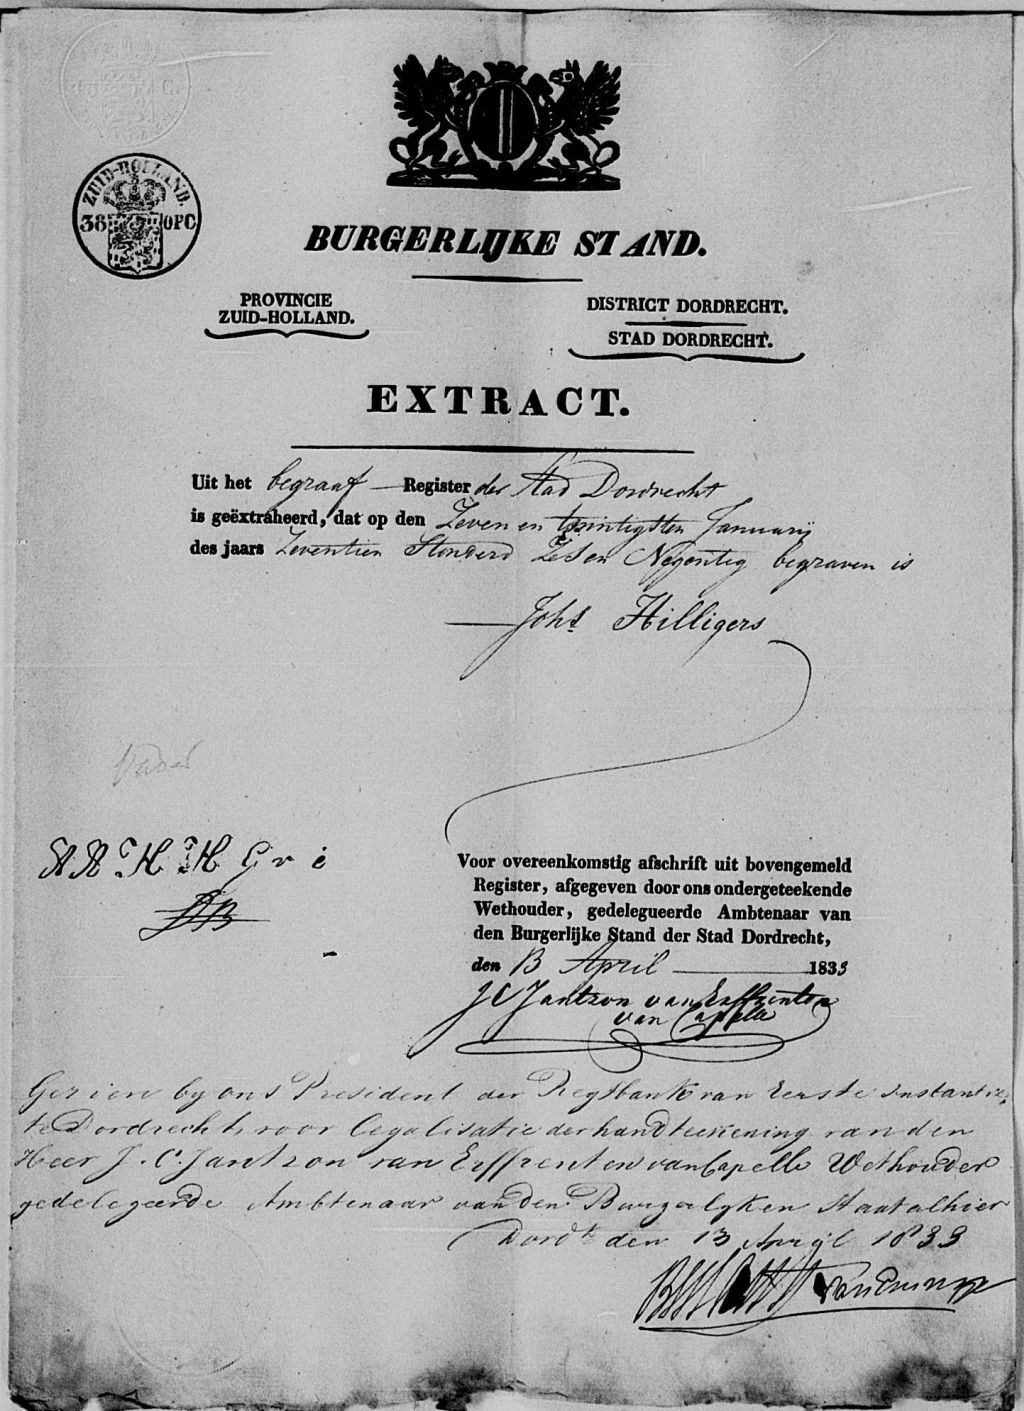 ZUID-HOLLAND.
38 OPC
BURGERLIJKE STAND.
PROVINCIE
ZUID-HOLLAND.
DISTRICT DORDRECHT.
STAD DORDRECHT.
EXTRACT.
Uit het begraaf Register der Stad Dordrecht
is geëxtraheerd, dat op den Zeven en twintigsten Januarij
des jaars Zeventien Honderd Zes en Negentig begraven is
Johs Hilligers
Vader
Voor overeenkomstig afschrift uit bovengemeld
Register, afgegeven door ons ondergeteekende
Wethouder, gedelegueerde Ambtenaar van
den Burgerlijke Stand der Stad Dordrecht,
den 13 April 1833
J C Jantzon van Erffrenten
van Capelle
Gezien by ons President der Regtbank van Eerste Instantie
te Dordrecht, voor legalisatie der handteekening van den
Heer J. C. Jantzon van Erffrenten van Capelle Wethouder
gedelegeerde Ambtenaar van den Burgerlyken Staat alhier
Dordt den 13 April 1833